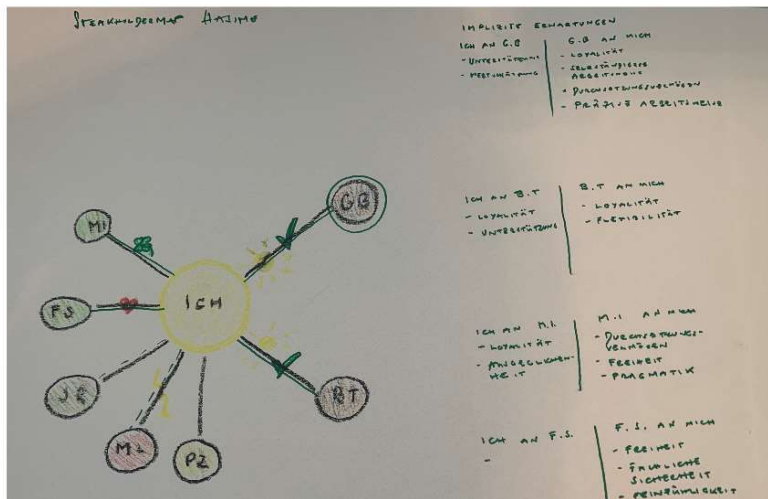 STAKEHOLDERMAP
IMPLIZITE ERWARTUNGEN
ICH AN G.B
- UNTERSTÜTZUNG
- WERTSCHÄTZUNG
G.B AN MICH
- LOYALITÄT
- SELBSTÄNDIGE
ARBEITSWEISE
- DURCHSETZUNGSVERMÖGEN
- PRÄZISE ARBEITSWEISE
GB
M1
ICH
FS
BT
PZ
ICH AN B.T
- LOYALITÄT
- UNTERSTÜTZUNG
B.T AN MICH
- LOYALITÄT
- FLEXIBILITÄT
ICH AN M.I.
- LOYALITÄT
- AUSGEGLICHEN-
HEIT
M.I. AN MICH
- DURCHSETZUNGS-
VERMÖGEN
- FREIHEIT
- PRAGMATIK
ICH AN F.S.
-
F.S. AN MICH
- FREIHEIT
- FACHLICHE
SICHERHEIT
- FEINFÜHLIGKEIT